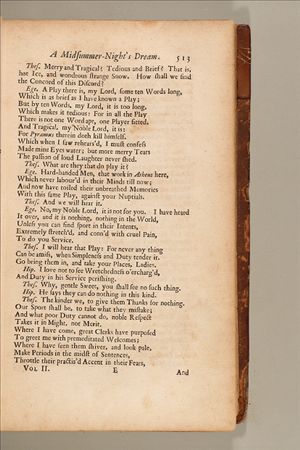 A Midſummer-Night's Dream. 513
Theſ. Merry and Tragical? Tedious and Brief? That is,
hot Ice, and wondrous ſtrange Snow. How ſhall we find
the Concord of this Diſcord?
Ege. A Play there is, my Lord, ſome ten Words long,
Which is as brief as I have known a Play;
But by ten Words, my Lord, it is too long,
Which makes it tedious: For in all the Play
There is not one Word apt, one Player fitted.
And Tragical, my Noble Lord, it is:
For Pyramus therein doth kill himſelf.
Which when I ſaw rehears'd, I muſt confeſs
Made mine Eyes water; but more merry Tears
The paſſion of loud Laughter never ſhed.
Theſ. What are they that do play it?
Ege. Hard-handed Men, that work in Athens here,
Which never labour'd in their Minds till now;
And now have toiled their unbreathed Memories
With this ſame Play, againſt your Nuptials.
Theſ. And we will hear it.
Ege. No, my Noble Lord, it is not for you. I have heard
It over, and it is nothing, nothing in the World,
Unleſs you can find ſport in their Intents,
Extremely ſtretch'd, and conn'd with cruel Pain,
To do you Service.
Theſ. I will hear that Play: For never any thing
Can be amiſs, when Simpleneſs and Duty tender it.
Go bring them in, and take your Places, Ladies.
Hip. I love not to ſee Wretchedneſs o'ercharg'd,
And Duty in his Service periſhing.
Theſ. Why, gentle Sweet, you ſhall ſee no ſuch thing.
Hip. He ſays they can do nothing in this kind.
Theſ. The kinder we, to give them Thanks for nothing.
Our Sport ſhall be, to take what they miſtake;
And what poor Duty cannot do, noble Reſpect
Takes it in Might, not Merit.
Where I have come, great Clerks have purpoſed
To greet me with premeditated Welcomes;
Where I have ſeen them ſhiver, and look pale,
Make Periods in the midſt of Sentences,
Throttle their practis'd Accent in their Fears,
VOL. II. E And